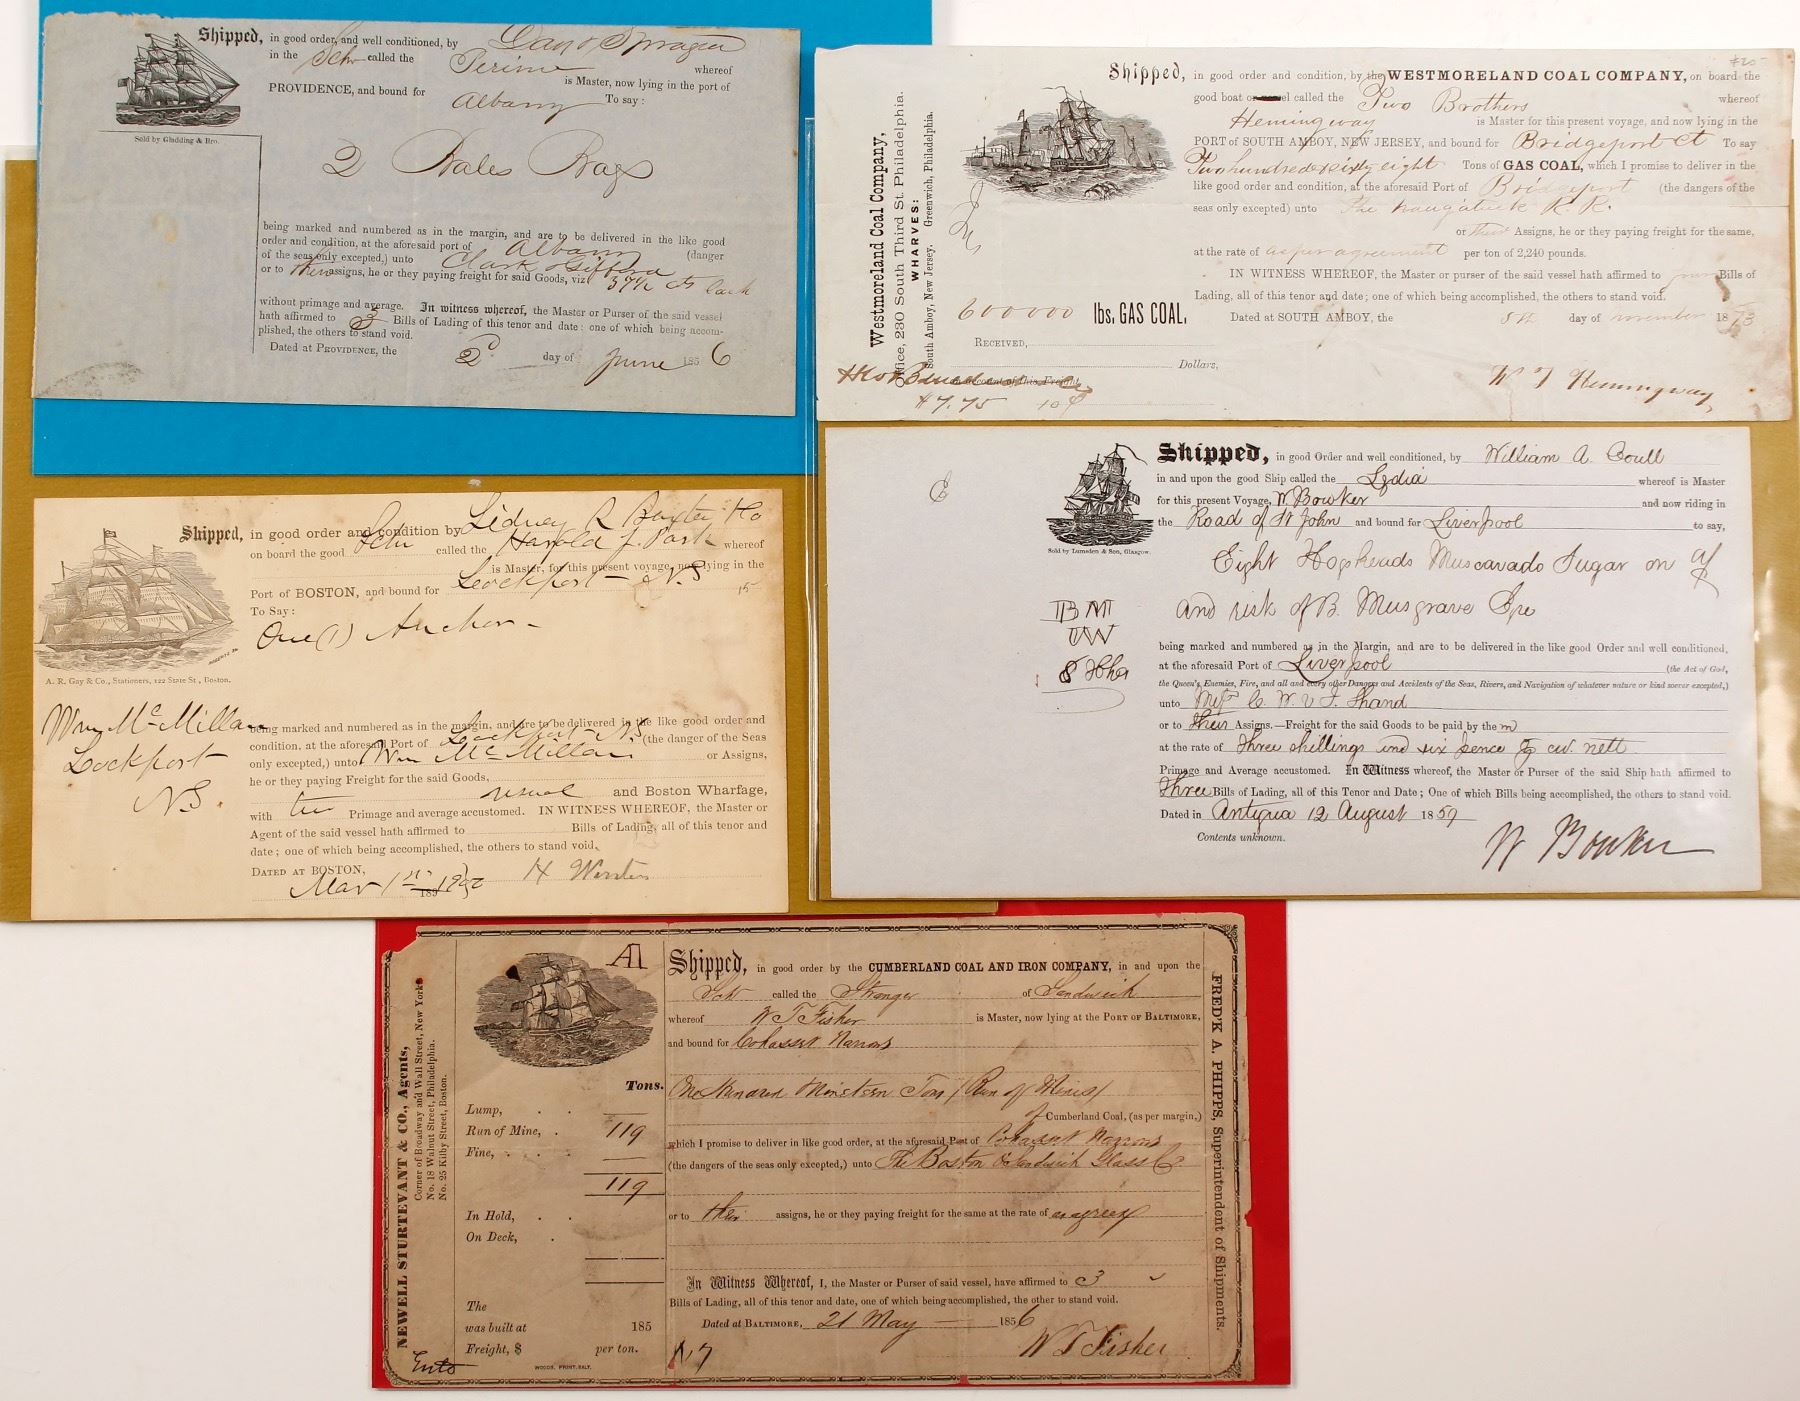 Shipped, in good order, and well conditioned, by
in the Schr called the whereof
is Master, now lying in the port of
PROVIDENCE, and bound for Albany To say:
Sold by Gladding & Bro.
2 Bales Rags
being marked and numbered as in the margin, and are to be delivered in the like good
order and condition, at the aforesaid port of Albany (danger
of the seas only excepted,) unto Clark &
or to their assigns, he or they paying freight for said Goods, viz 37½ cts Each
without primage and average. In witness whereof, the Master or Purser of the said vessel
hath affirmed to 3 Bills of Lading of this tenor and date: one of which being accom-
plished, the others to stand void.
Dated at PROVIDENCE, the 2d day of June 1856
Westmoreland Coal Company,
Office, 230 South Third St. Philadelphia.
WHARVES:
South Amboy, New Jersey. Greenwich, Philadelphia.
Shipped, in good order and condition, by the WESTMORELAND COAL COMPANY, on board the
good boat or called the Two Brothers whereof
Hemingway is Master for this present voyage, and now lying in the
PORT of SOUTH AMBOY, NEW JERSEY, and bound for Bridgeport Ct To say
Two hundred sixty eight Tons of GAS COAL, which I promise to deliver in the
like good order and condition, at the aforesaid Port of Bridgeport (the dangers of the
seas only excepted) unto The Naugatuck R. R.
or their Assigns, he or they paying freight for the same,
at the rate of as per agreement per ton of 2,240 pounds.
IN WITNESS WHEREOF, the Master or purser of the said vessel hath affirmed to Bills of
Lading, all of this tenor and date; one of which being accomplished, the others to stand void.
600000 lbs. GAS COAL.
Dated at SOUTH AMBOY, the 8th day of november 1873
RECEIVED,
Dollars,
on account of this Freight
$7.75 10
W T Hemingway
Shipped, in good order and condition by Sidney R Baxter & Co
on board the good Schr called the Harold J. Park whereof
is Master, for this present voyage, now lying in the
Port of BOSTON, and bound for Lockport N.S
To Say:
One (1) Anchor
A. R. Gay & Co., Stationers, 122 State St., Boston.
Wm McMillan
Lockport
N.S
being marked and numbered as in the margin, and are to be delivered in the like good order and
condition, at the aforesaid Port of Lockport N.S (the danger of the Seas
only excepted,) unto Wm McMillan or Assigns,
he or they paying Freight for the said Goods,
usual and Boston Wharfage,
with Primage and average accustomed. IN WITNESS WHEREOF, the Master or
Agent of the said vessel hath affirmed to Bills of Lading, all of this tenor and
date; one of which being accomplished, the others to stand void.
DATED AT BOSTON,
Mar 189
Shipped, in good Order and well conditioned, by William A. Coull
in and upon the good Ship called the Lydia whereof is Master
for this present Voyage, W. Bowker and now riding in
the Road of St John and bound for Liverpool to say,
Sold by Lumsden & Son, Glasgow.
Eight Hogsheads Muscavado Sugar on a/c
and risk of B. Musgrave Esqre
BM
8 Hhds
being marked and numbered as in the Margin, and are to be delivered in the like good Order and well conditioned,
at the aforesaid Port of Liverpool (the Act of God,
the Queen's Enemies, Fire, and all and every other Dangers and Accidents of the Seas, Rivers, and Navigation of whatever nature or kind soever excepted,)
unto Messrs C. W. & F. Shand
or to their Assigns.—Freight for the said Goods to be paid by the m
at the rate of three shillings and six pence cw. nett
Primage and Average accustomed. In Witness whereof, the Master or Purser of the said Ship hath affirmed to
three Bills of Lading, all of this Tenor and Date; One of which Bills being accomplished, the others to stand void.
Dated in Antigua 12 August 1859
Contents unknown.
W Bowker
NEWELL STURTEVANT & CO., Agents,
Corner of Broadway and Wall Street, New York.
No. 18 Walnut Street, Philadelphia.
No. 25 Kilby Street, Boston.
A1
Tons.
Lump,
Run of Mine, 119
Fine,
119
In Hold,
On Deck,
The
was built at 185
Freight, $ per ton.
WOODS, PRINT. BALT.
Shipped, in good order by the CUMBERLAND COAL AND IRON COMPANY, in and upon the
Schr called the Stranger of Sandwich
whereof W T Fisher is Master, now lying at the PORT OF BALTIMORE,
and bound for Cohasset Narrows
One Hundred Nineteen Tons (Run of Mines)
of Cumberland Coal, (as per margin,)
which I promise to deliver in like good order, at the aforesaid Port of Cohasset Narrows
(the dangers of the seas only excepted,) unto The Boston & Sandwich Glass Co.
or to their assigns, he or they paying freight for the same at the rate of as agreed
In Witness Whereof, I, the Master or Purser of said vessel, have affirmed to 3
Bills of Lading, all of this tenor and date, one of which being accomplished, the other to stand void.
Dated at BALTIMORE, 21 May 1856
W T Fisher
FRED'K A. PHIPPS, Superintendent of Shipments.